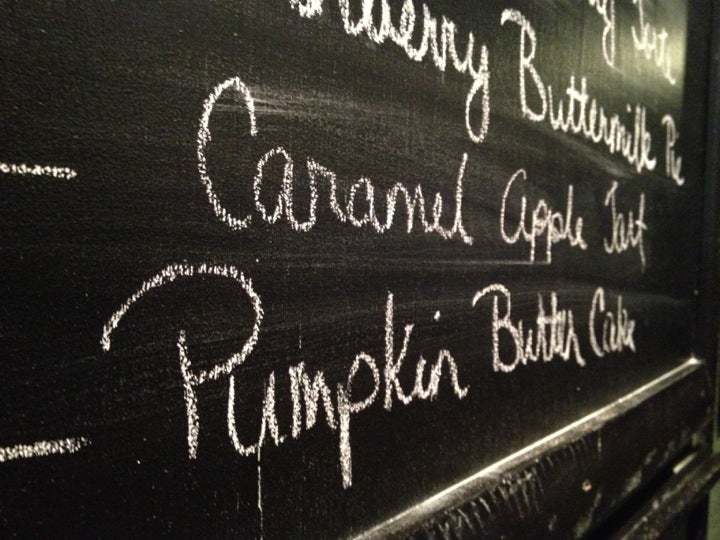 Tart
Buttermilk Pie
Caramel Apple Tart
Pumpkin Butter Cake